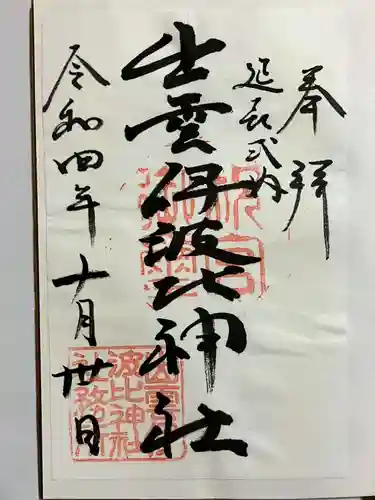 奉拝
延喜式内
出雲伊波比神社
令和四年十月卅日
出雲伊
波比神社
社務所